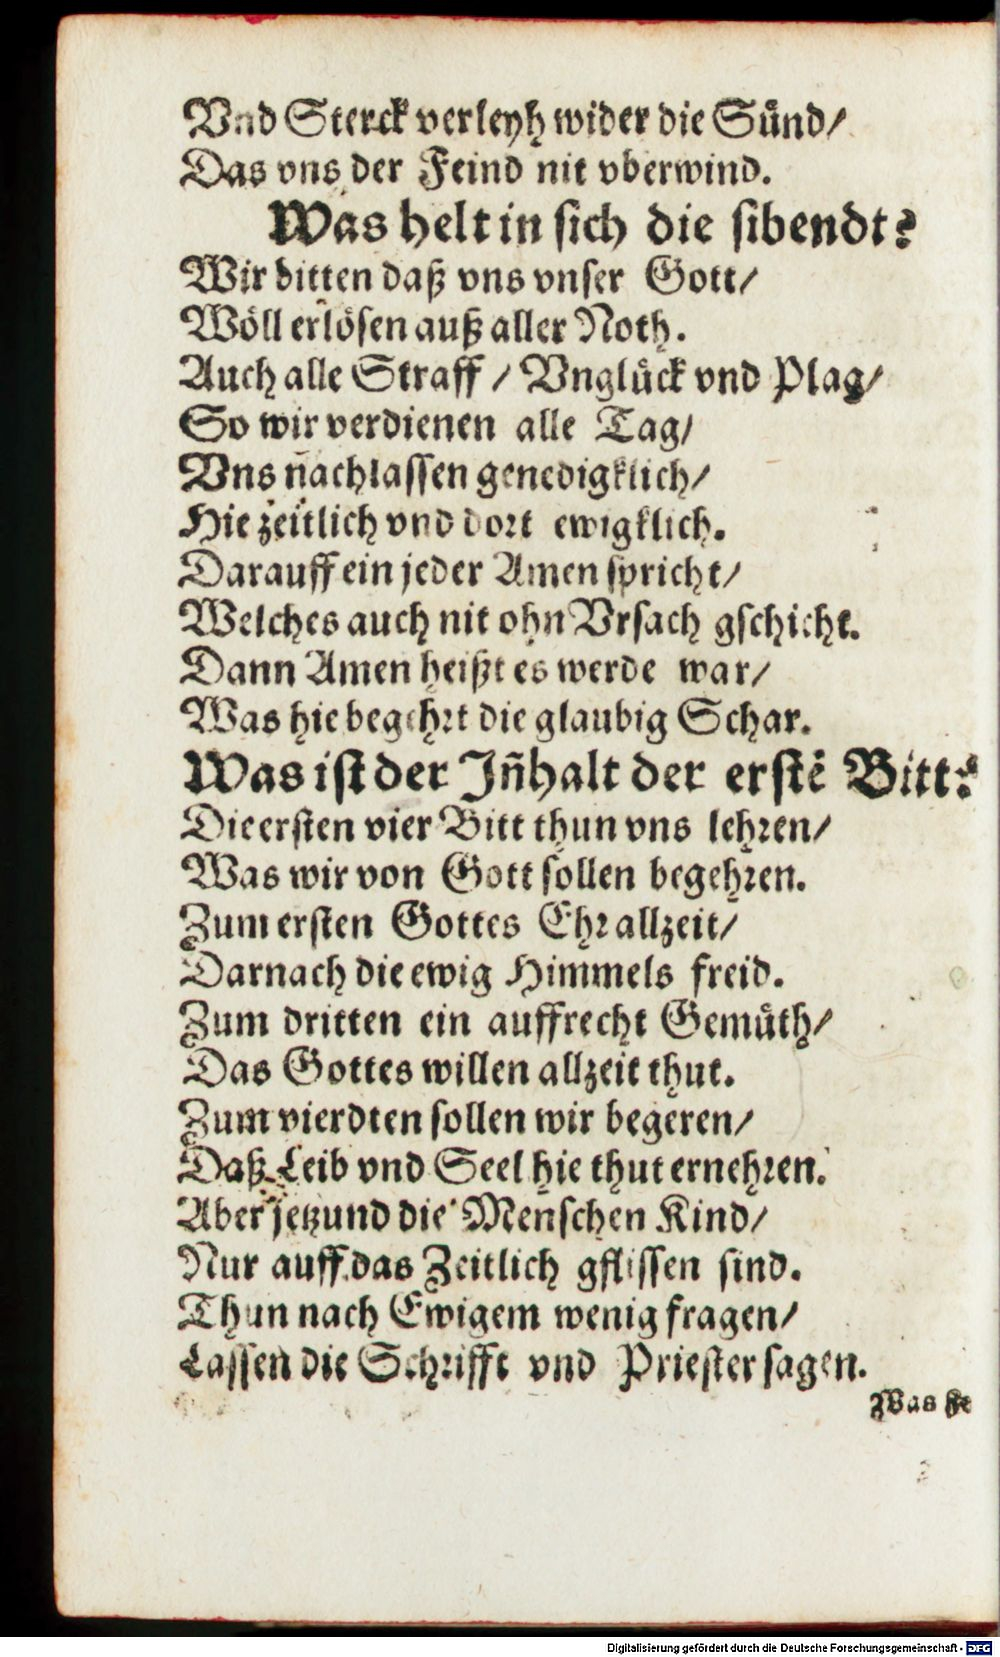 Vnd Sterck verleyh wider die Sünd/
Das vns der Feind nit vberwind.
Was helt in sich die sibendt?
Wir bitten daß vns vnser Gott/
Wöll erlösen auß aller Noth.
Auch alle Straff / Vnglück vnd Plag/
So wir verdienen alle Tag/
Vns nachlassen genedigklich/
Hie zeitlich vnd dort ewigklich.
Darauff ein jeder Amen spricht/
Welches auch nit ohn Vrsach gschicht.
Dann Amen heißt es werde war/
Was hie begehrt die glaubig Schar.
Was ist der Jñhalt der erstē Bitt?
Die ersten vier Bitt thun vns lehren/
Was wir von Gott sollen begehren.
Zum ersten Gottes Ehr allzeit/
Darnach die ewig Himmels freid.
Zum dritten ein auffrecht Gemüth/
Das Gottes willen allzeit thut.
Zum vierdten sollen wir begeren/
Daß Leib vnd Seel hie thut ernehren.
Aber jetzund die Menschen Kind/
Nur auff das Zeitlich gflissen sind.
Thun nach Ewigem wenig fragen/
Lassen die Schrifft vnd Priester sagen.
Was
Digitalisierung gefördert durch die Deutsche Forschungsgemeinschaft - DFG